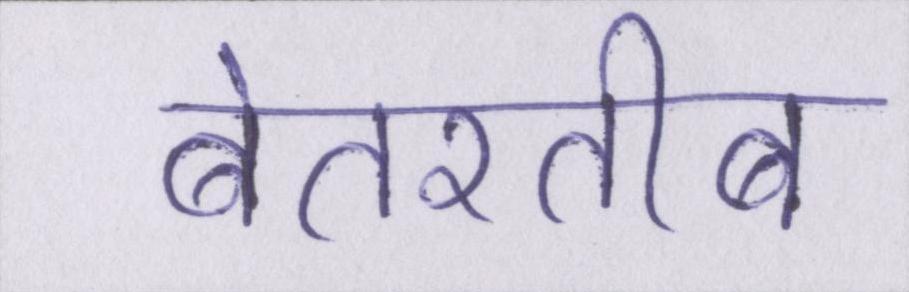 बेतरतीब